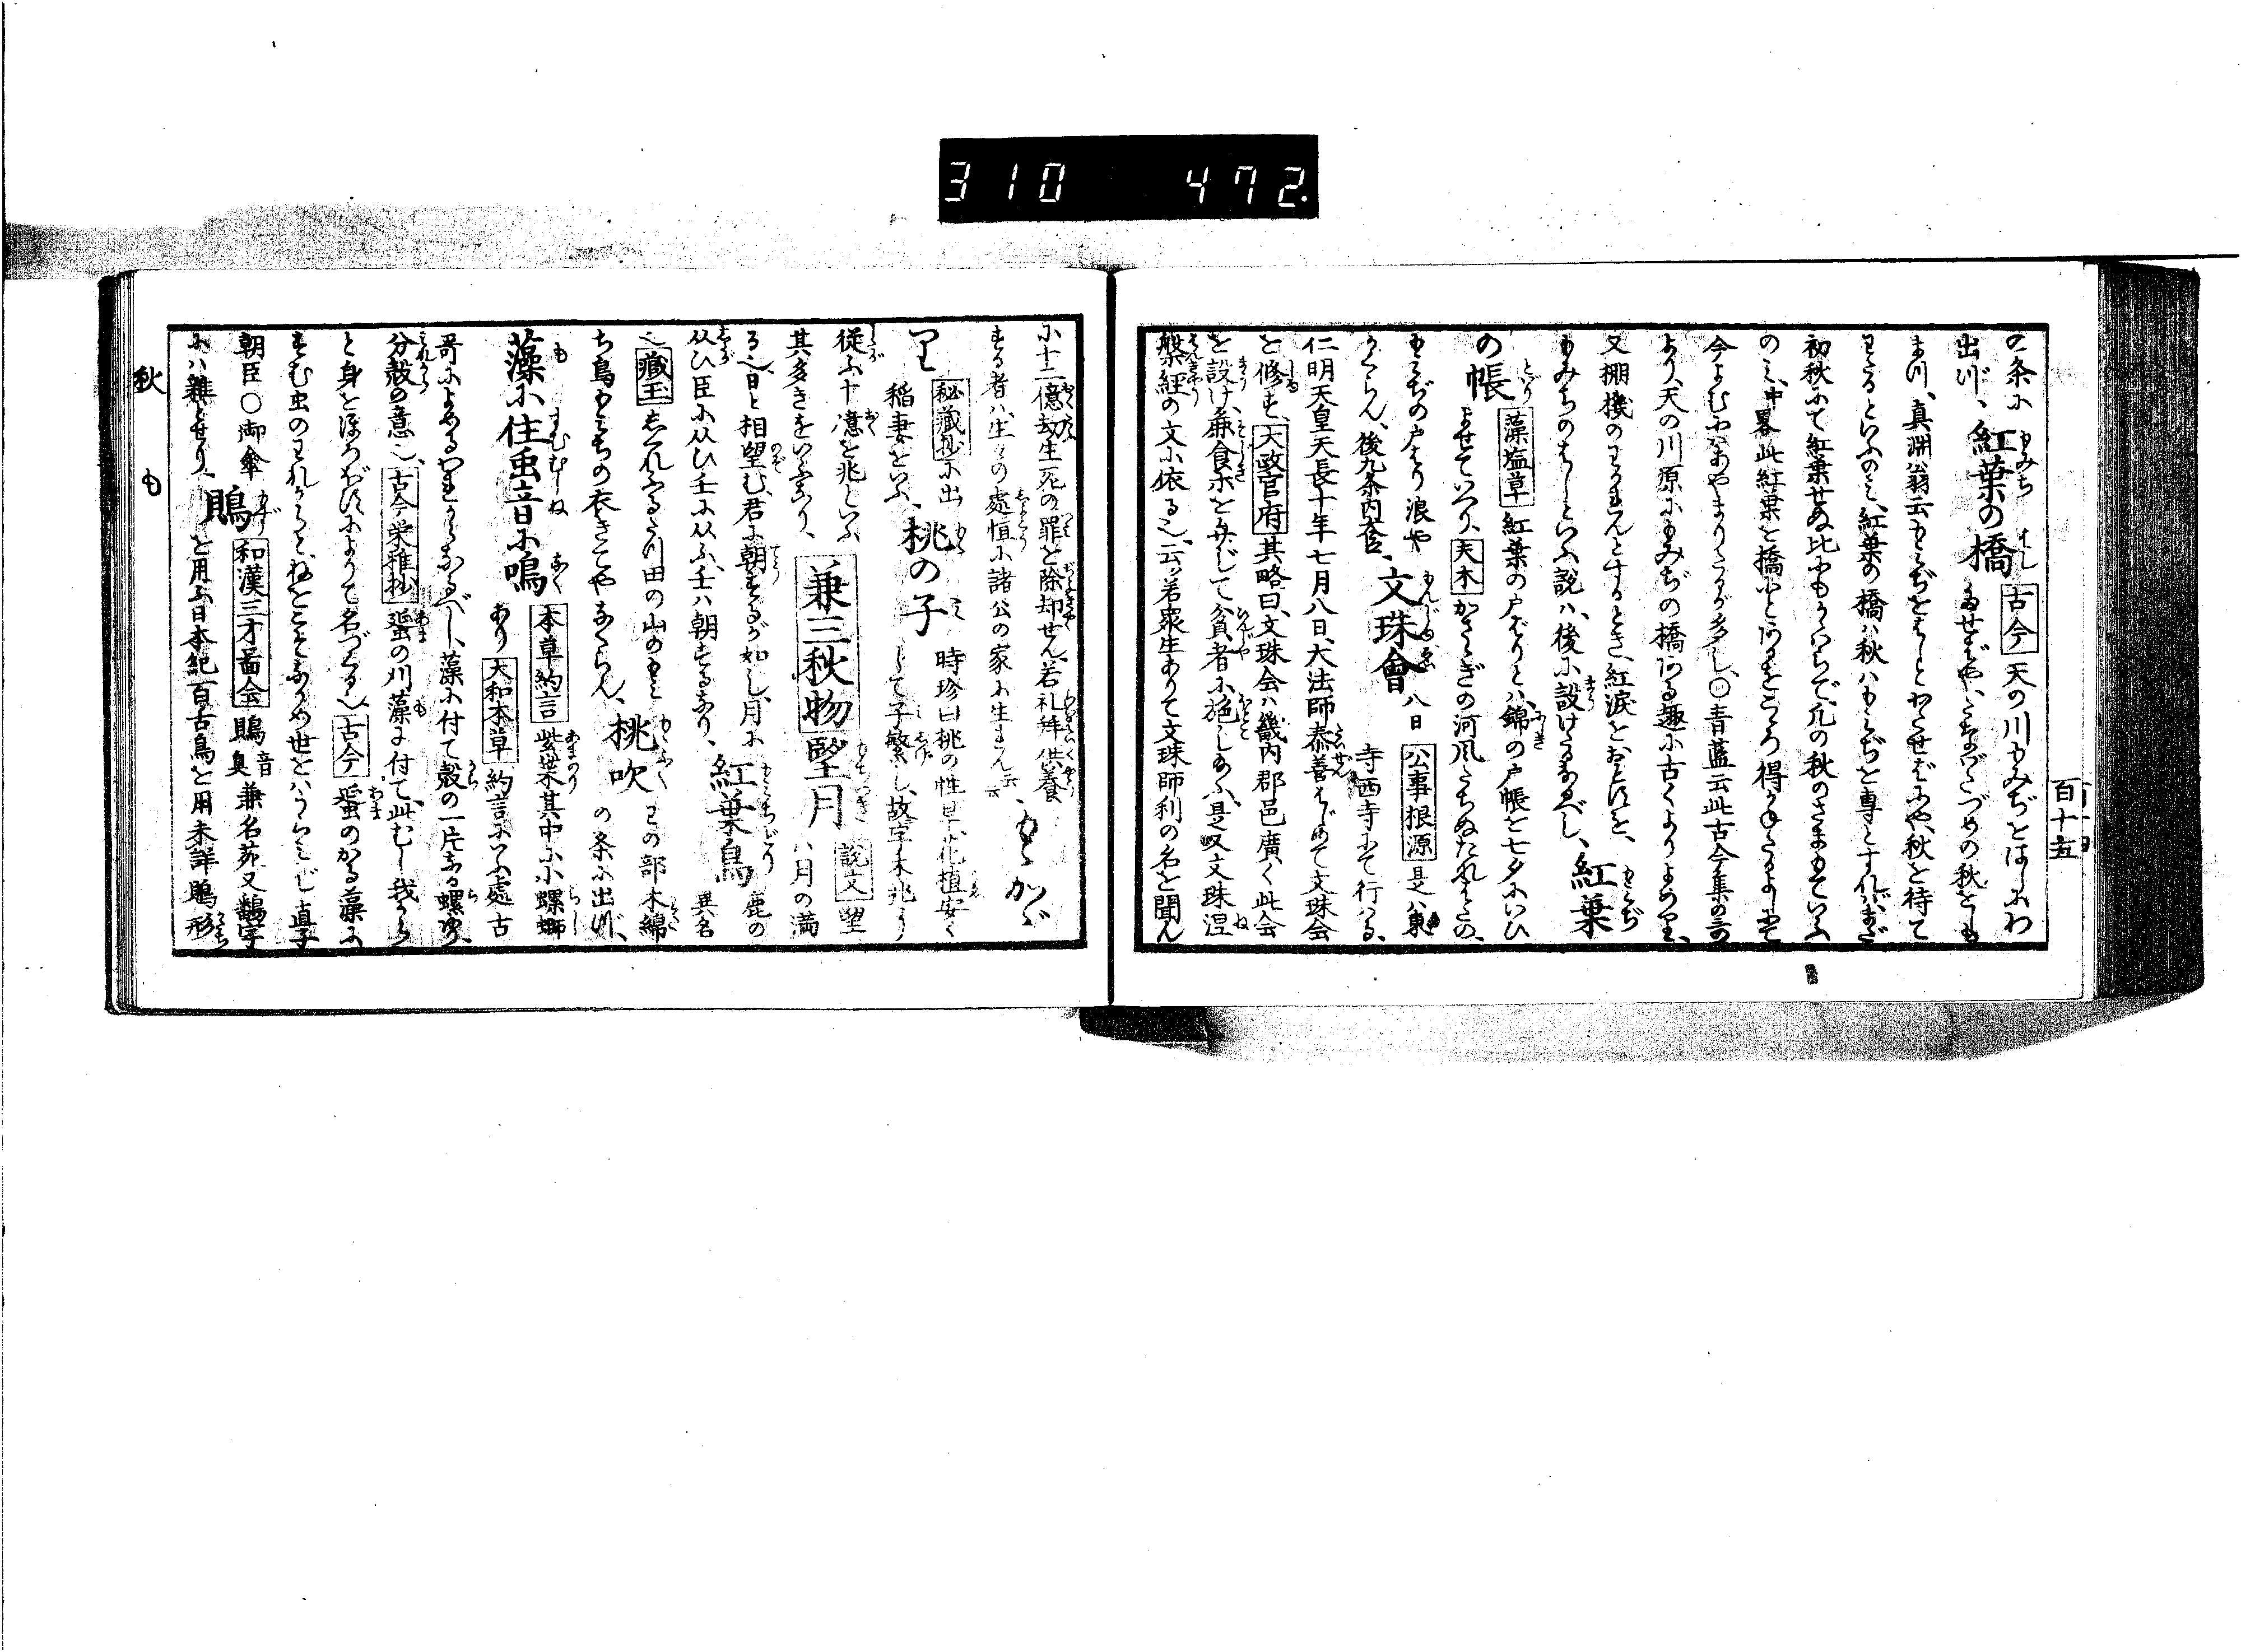 310 472.
百十五
の条に 紅葉の橋 古今 天の川もみぢをはしにわ
出づ、 たせばや、たなばたづめの秋をしも
まつ、真渊翁云もみぢをはしとわたせばにや、秋を待て
わたるといふのミ、紅葉の橋ハ秋ハもみぢを専とすれバ、まだ
初秋にて紅葉せぬ比にもかゝらで、凡の秋のさまもていふ
のミ、中畧此紅葉を橋に
今よむにあやまりたるが多し、○青藍云此古今集の哥
より、天の川原にもみぢの橋ある趣に古くよりよめり、
又棚機のわかれんとするとき、紅涙をおとすを、 紅葉
もみちのはしといふ説ハ、後に設けたるなるべし、
の帳 藻塩草 紅葉の戸ばりとハ、錦の戸帳を七夕にいひ
よせていへり、夫木 かさゝぎの河風たちぬたれはたの、
もみぢの戸はり浪や
かくらん、後九条内大臣、 文珠會 八日 公事根源 是ハ東
寺西寺にて行はる、
仁明天皇天長十年七月八日、大法師泰善はじめて文珠会
を修す、大政官府 其略曰、文珠会ハ畿内郡邑廣く此会
を設け、兼食等を弁じて、貧者に施し給ふ、是又文珠涅
槃経の文に依る也、云〻若衆生ありて文珠師利の名を聞ん
に十二億劫生死の罪を除却せん、若礼拜供養
する者ハ、生々の處恒に諸公の家に生まれん云云、 もゝかゞ
り 秘藏抄に出 稲妻をいふ、 桃の子 時珍曰桃の性早花植安く
して子繁し、故字木兆に
従ふ十億を兆といふ
其多きをいふなり、 兼三秋物 望月 説文 望 八月の満
る也、日と相望む、君に朝するが如し、月に
从ひ臣に从ひ壬に从ふ、壬ハ朝するなり、 紅葉鳥 鹿の 異名
也 藏玉 しぐれふるたつ田の山のもみ
ち鳥もみちの衣きてやなくらん、 桃吹 わの部木綿 の条に出づ、
藻に住虫音に鳴 本草約言 紫菜其中に小螺螄
あり 大和本草 約言にいふ處古
哥によめるわれからなるべし、藻に付て殻の一片なる螺有、
分殻の意也、古今栄雅抄 蜑の刈藻に付て、此むし我から
と身をほろぼすによりて名づくる也 古今 蜑のかる藻に
すむ虫のわれからと、ねをこそなかめ世をハうらミじ 直子
朝臣 ○御傘
にハ雑とせり、 鵙 和漢三才図会 鵙音臭 兼名苑又鵲字
を用ふ日本紀百舌鳥を用未詳 鵙形
秋
も